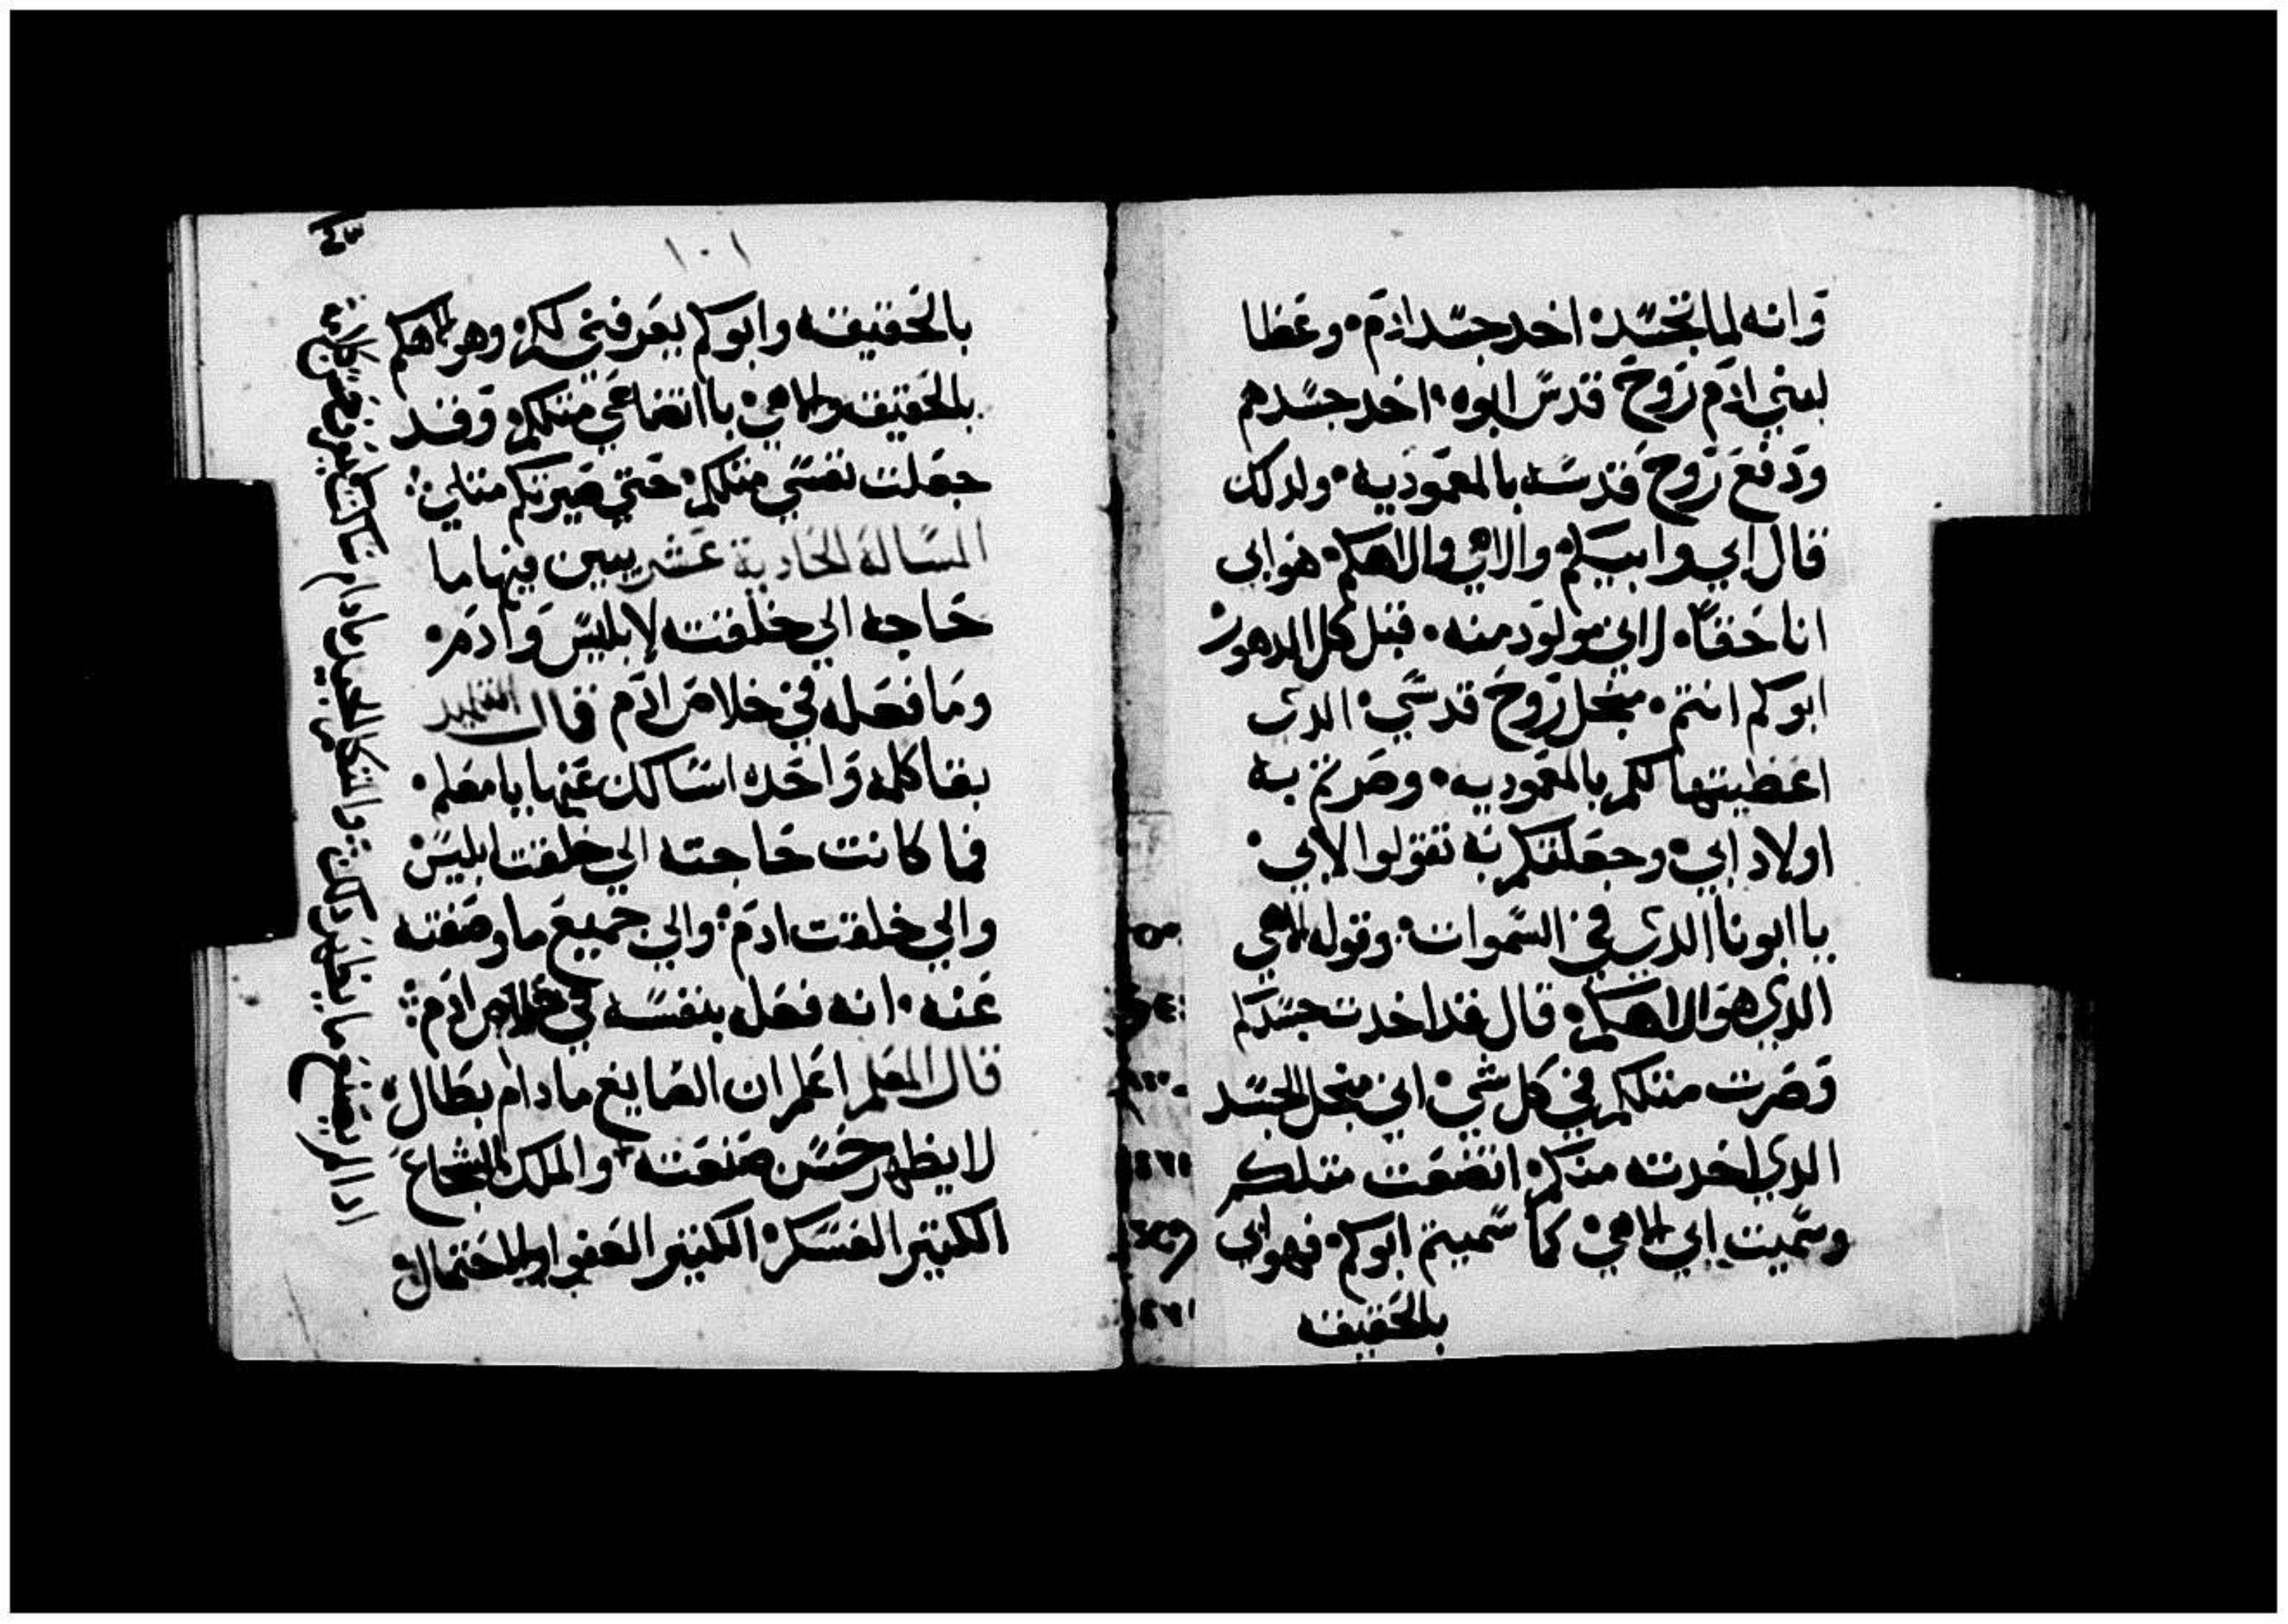 وانه لما تجسد اخد جسد ادم وعطا
لبني ادم روح قدس ابوه اخد جسدهم
ودفع روح قدسه بالمعموديه ولدلك
قال ابي وابيكم والاهي والاهكم هو ابي
انا حقاً لاني مولود منه قبل كل الدهور
ابوكم انتم من اجل روح قدسي الدي
اعطيتها لكم بالمعموديه وصرتم به
اولاد ابي وجعلتكم به تقولوا لابي
يا ابونا الدي في السموات وقوله الاهي
الدي هو الاهكم قال قد اخدت جسدكم
وصرت متلكم في كل شي اني من اجل الجسد
الدي اخدته منكم اتضعت متلكم
وسميت ابي الاهي كما سميتم ابوكم فهو ابي
بالحقيقه
١٠١
بالحقيقه وابوكم بمعرفتي لكم وهو الاهكم
بالحقيقه والاهي باتضاعي متلكم وقد
جعلت نفسي متلكم حتي صيرتكم متلي
المسالة الحادية عشر يبين فيها ما
حاجه الي خلقته لابليس وادم
وما فعله في خلاص ادم قال التلميد
بقا كلمه واحده اسالك عنها يا معلم
فما كانت حاجته الي خلقت ابليس
والي خلقت ادم والي جميع ما وصفته
عنه انه فعل بنفسه في خلاص ادم
قال المعلم اعلم ان الصايغ مادام بطال
لا يظهر حسن صنعته والملك الشجاع
الكتير العسكر الكتير العفو والاحتمال